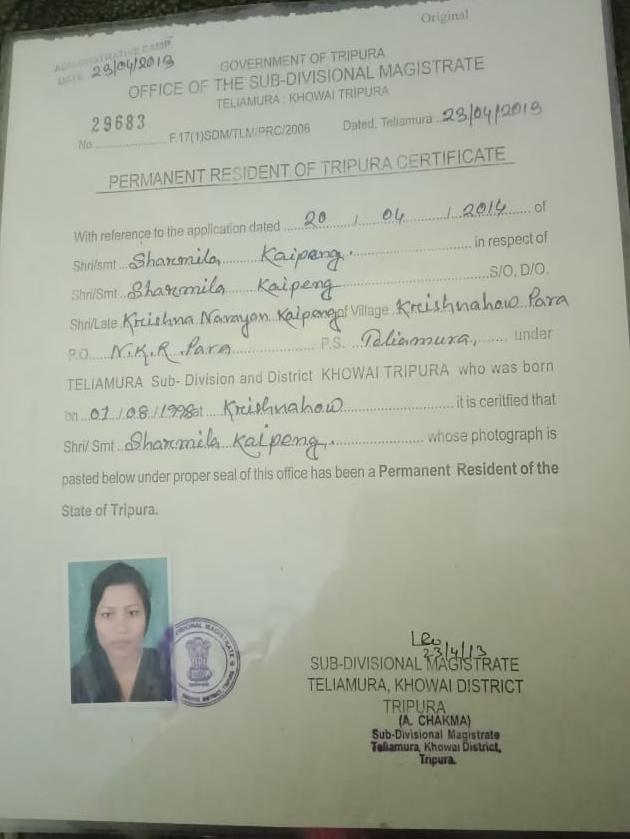 Original
ADMINISTRATIVE CAMP
DATE 23/04/2013
GOVERNMENT OF TRIPURA
OFFICE OF THE SUB-DIVISIONAL MAGISTRATE
TELIAMURA : KHOWAI TRIPURA
No. 29683 F.17(1)SDM/TLM/PRC/2006 Dated, Teliamura 23/04/2013
PERMANENT RESIDENT OF TRIPURA CERTIFICATE
With reference to the application dated 20 / 04 / 2014 of
Shri/smt Sharmila Kaipeng. in respect of
Shri/Smt Sharmila Kaipeng S/O, D/O.
Shri/Late Krishna Narayan Kaipeng of Village Krishnahow Para
P.O. N.K.R. Para P.S. Teliamura, under
TELIAMURA Sub- Division and District KHOWAI TRIPURA who was born
on 01/08/1998 at Krishnahow it is ceritfied that
Shri/ Smt Sharmila Kaipeng. whose photograph is
pasted below under proper seal of this office has been a Permanent Resident of the
State of Tripura.
23/4/13
SUB-DIVISIONAL MAGISTRATE
TELIAMURA, KHOWAI DISTRICT
TRIPURA
(A. CHAKMA)
Sub-Divisional Magistrate
Teliamura, Khowai District,
Tripura.